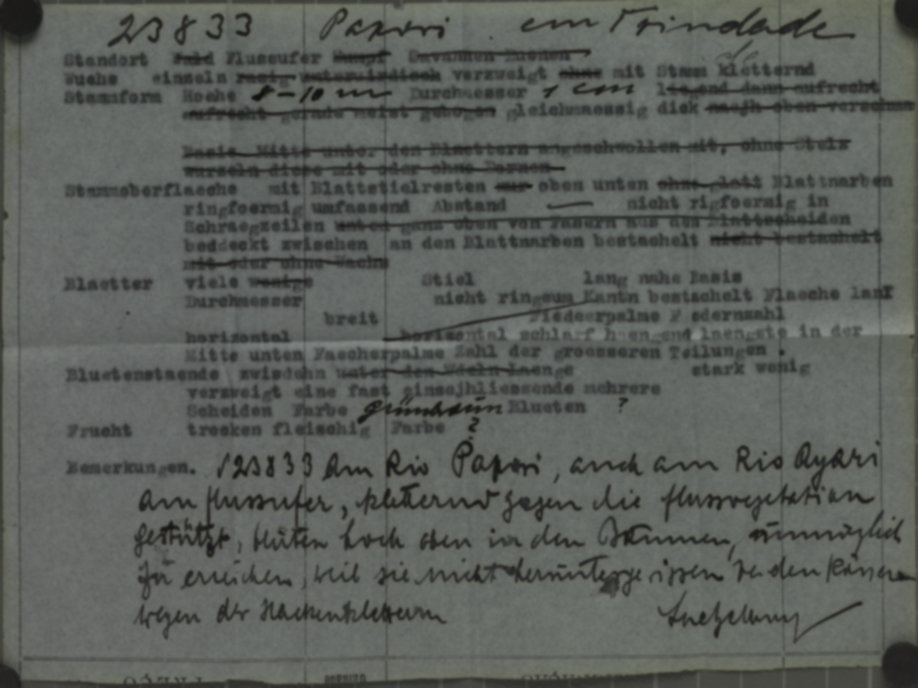 23833 Papori em Trindade
Standort Wald Flussufer Sumpf Savannen
Wuchs einzeln rasig unterirdisch verzweigt ohne mit Stamm kletternd
Stammform Hoehe 8-10 m Durchmesser 1 cm liegend dann aufrecht
aufrecht gerade meist gebogen gleichmaessig dick nach oben
Basis Mitte unter den Blaettern angeschwollen mit, ohne Stelz
wurzeln diese mit oder ohne Dornen
Stammoberflaeche mit Blattstielresten nur oben unten ohne glatt Blattnarben
ringfoermig umfassend Abstand — nicht rigfoermig in
Schraegzeilen unten ganz oben von Fasern aus den Blattscheiden
beddeckt zwischen an den Blattnarben bestachelt nicht bestachelt
mit oder ohne Wachs
Blaetter viele wenige Stiel lang nahe Basis
Durchmesser nicht ringsum Kantn bestachelt Flaeche lang
breit Fiederpalme F edernzahl
horizontal horizontal schlaff haengend laengste in der
Mitte unten Faecherpalme Zahl der groesseren Teilungen .
Bluetenstaende zwisdehn unter den Laenge stark wenig
verzweigt eine fast mehrere
Scheiden Farbe grünbraun Blueten ?
Frucht trocken fleischig Farbe ?
Bemerkungen. 23833 Am Rio Papori, auch am Rio Ayari
am flussufer, kletternd gegen die flussvegetation
gestützt, blüten hoch oben in den Bäumen, unmöglich
zu erreichen, weil sie nicht werden können
wegen der Hackenkletterern